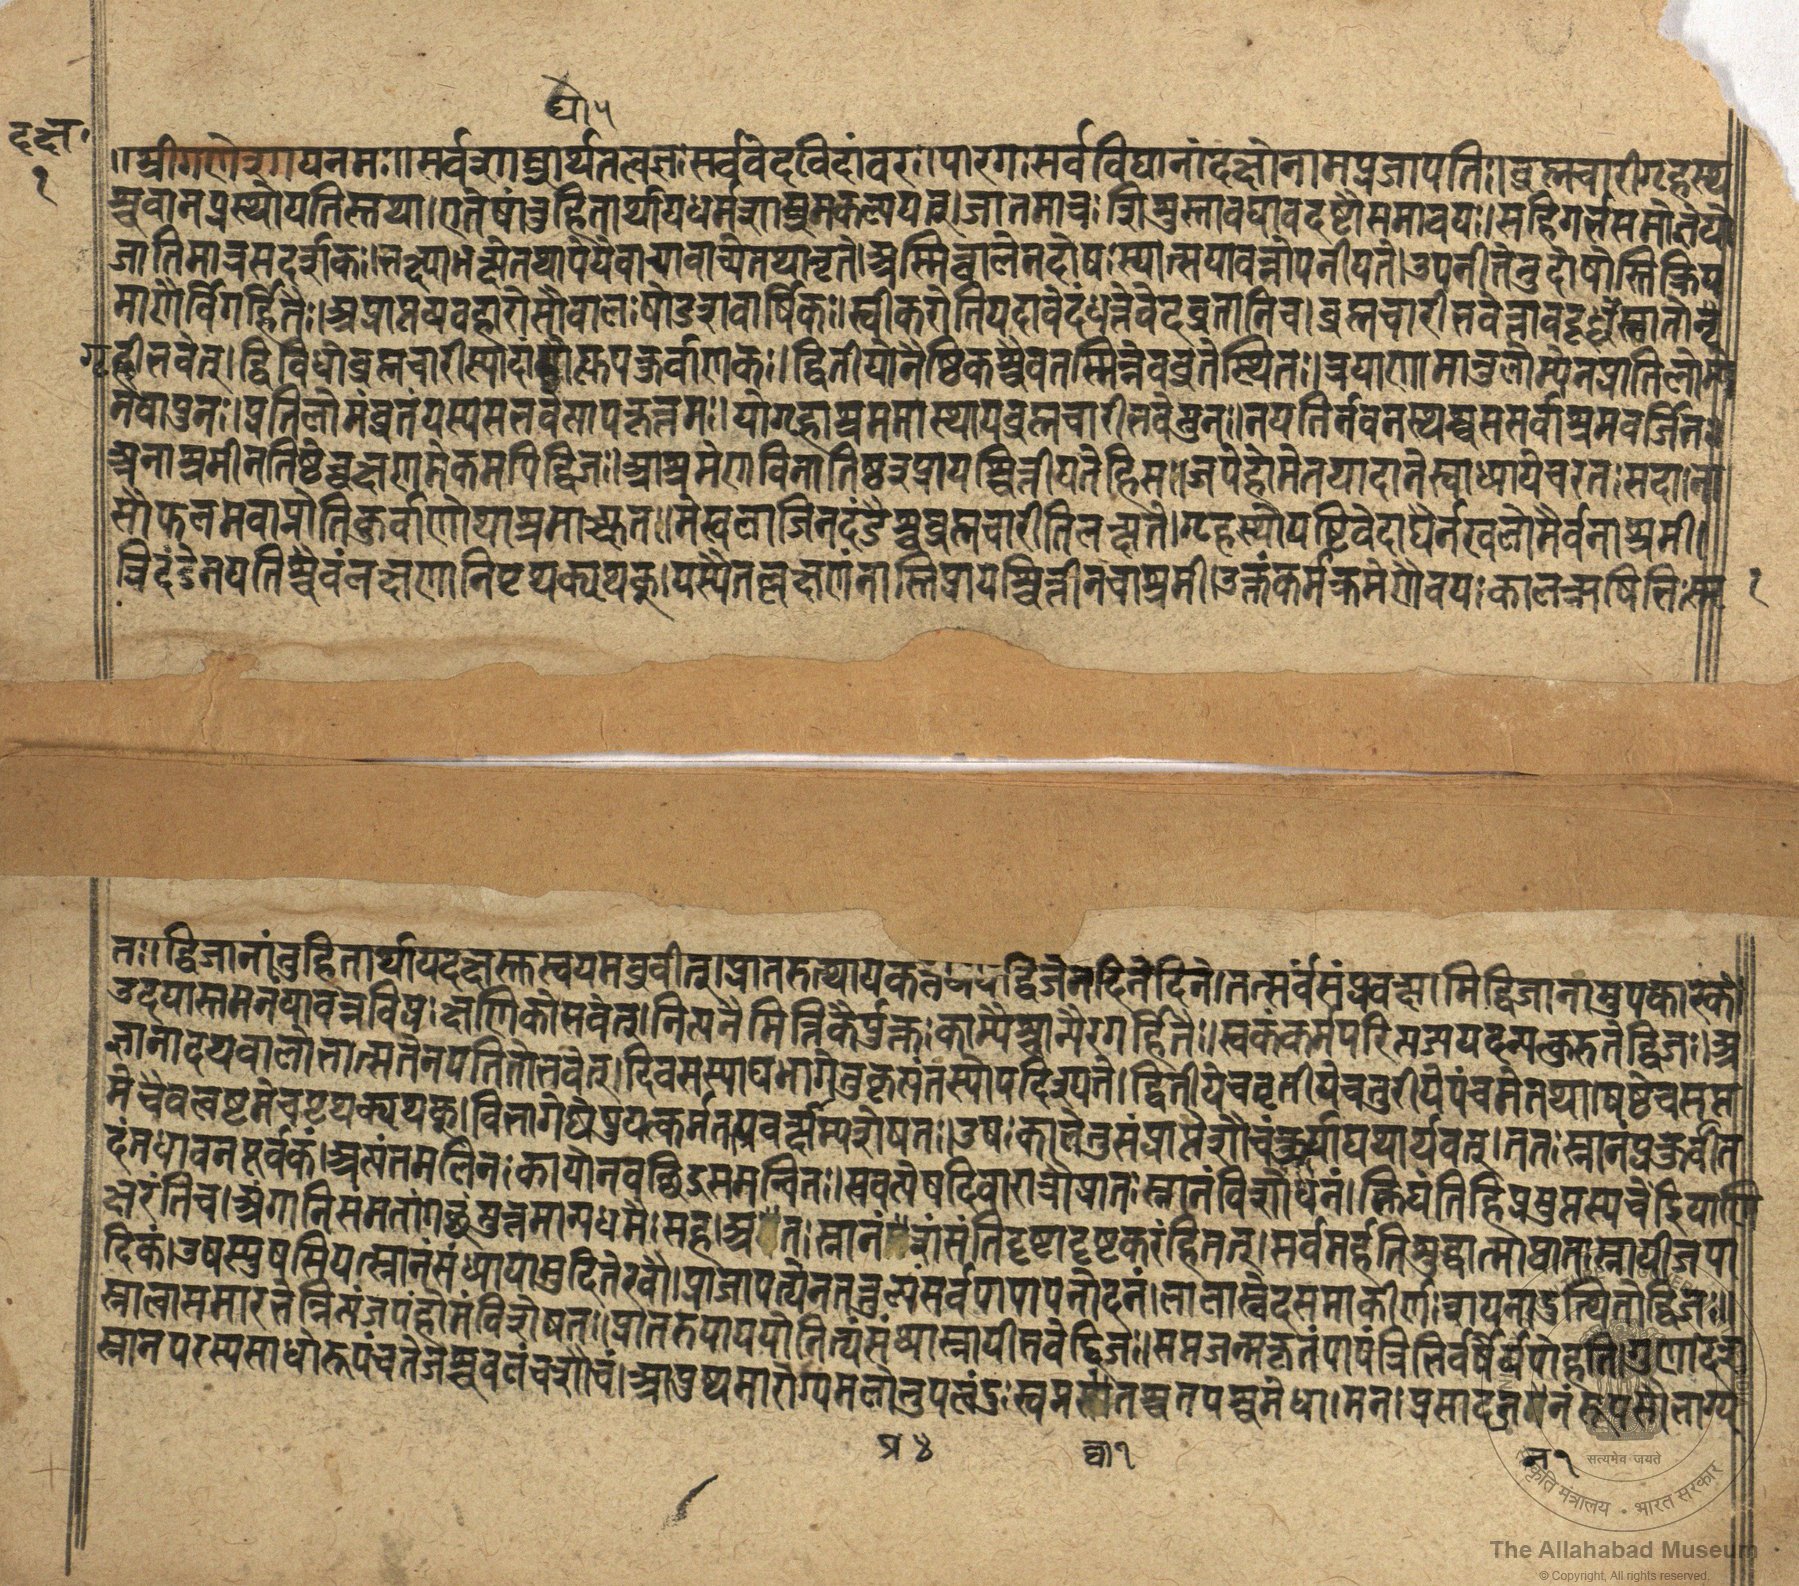 द्यो ५
दक्ष॰
१
॥श्रीगणेशायनमः॥सर्वशास्त्रार्थतत्वज्ञःसर्ववेदविदांवरः॥पारगःसर्वविद्यानांदक्षोनामप्रजापतिः॥ब्रह्मचारीगृहस्थ
श्चवानप्रस्थोयतिस्तथा।एतेषांतुहितार्थायधर्मशास्त्रमकल्पयत्।जातमात्रःशिशुस्तावद्यावदष्टौसमावयः।सहिगर्भसमोज्ञेयो
जातिमात्रसदर्शकः।भक्ष्याभक्ष्येतथापेयेवाच्यावाच्येतथानृते।अस्मिन्बालेनदोषःस्यात्सयावन्नोपनीयते।उपनीतेतुदोषोस्तिक्रिय
माणैर्विगर्हितैः।अप्राप्तव्यवहारोसौबालःषोडशवार्षिकः॥स्वीकरोतियदावेदंधत्तेवेदव्रतानिच।ब्रह्मचारीभवेत्तावदूर्ध्वंस्नातोगृ
गृहीभवेत्।द्विविधोब्रह्मचारीस्यादाद्योह्युपकुर्वाणकः॥द्वितीयोनैष्ठिकश्चैवतस्मिन्नेवव्रतेस्थितः॥त्रयाणामानुलोम्येनप्रातिलोम्ये
नवापुनः।प्रतिलोमंव्रतंयस्यसभवेत्पापकृत्तमः।योगृहाश्रममास्थायब्रह्मचारीभवेत्पुनः।नयतिर्नवनस्थश्चससर्वाश्रमवर्जितः
अनाश्रमीनतिष्ठेत्तुक्षणमेकमपिद्विजः॥आश्रमेणविनातिष्ठन्प्रायश्चित्तीयतेहिसः॥जपेहोमेतथादानेस्वाध्यायेचरतःसदा।ना
सौफलमवाप्नोतिकुर्वाणोप्याश्रमाच्च्युतः।मेखलाजिनदंडैश्चब्रह्मचारीतिलक्ष्यते।गृहस्थोयष्टिवेदाद्यैर्नखलोमैर्वनाश्रमी।
त्रिदंडेनयतिश्चैवंलक्षणानिपृथक्पृथक्।यस्यैतल्लक्षणंनास्तिप्रायश्चित्तीनचाश्रमी।उक्तंकर्मक्रमेणैवयःकालऋषिभिःस्मृ
१
तः॥द्विजानांतुहितार्थायदक्षस्तुस्वयमब्रवीत्।प्रातरुत्थायकर्तव्यंयद्द्विजेनदिनेदिने।तत्सर्वंसंप्रवक्ष्यामिद्विजानामुपकारकं
उदयास्तमनंयावन्नविप्रःक्षणिकोभवेत्।नित्यनैमित्तिकैर्युक्तःकाम्यैश्चान्यैरगर्हितैः।स्वकंकर्मपरित्यज्ययदन्यत्कुरुतेद्विजः।अ
ज्ञानादथवालोभात्सतेनपतितोभवेत्।दिवसस्याद्यभागेतुकृत्यंतस्योपदिश्यते।द्वितीयेचतृतीयेचतुरीयेपंचमेतथा।षष्ठेचसप्त
मेचैवत्वष्टमेचपृथक्पृथक्।विभागेष्वेषुयत्कर्मतत्प्रवक्ष्याम्यशेषतः।उषःकालेतुसंप्राप्तेशौचंकुर्याद्यथार्थवत्।ततःस्नानंप्रकुर्वीत
दंतधावनपूर्वकं।अत्यंतमलिनःकायोनवच्छिद्रसमन्वितः॥स्रवत्येषदिवारात्रौप्रातःस्नानंविशोधनं।क्लिद्यंतिहिप्रसुप्तस्यचेंद्रियाणि
क्षरंतिच।अंगानिसमतांगच्छंत्युत्तमान्यधमैःसह।अ॥तः।स्नानं॥शंसंतिदृष्टादृष्टकरंहितत्।सर्वमर्हतिशुद्धात्माप्रातःस्नायीजपा
दिकं।उषस्युषसियत्स्नानंसंध्यायामुदितेरवौ।प्राजापत्येनतत्तुल्यंसर्वपापापनोदनं।लालास्वेदसमाकीर्णःशयनादुत्थितोद्विजः॥
स्नात्वासमारभेन्नित्यंजपंहोमंविशेषतः।प्रातरुत्थाययोनित्यंसंध्यास्नायीभवेद्द्विजः॥सप्तजन्मकृतंपापंत्रिभिर्वर्षैर्व्यपोहति।गुणादश
स्नानपरस्यसाधोरूपंचतेजश्चबलंचशौचं।आयुष्यमारोग्यमलोलुपत्वंदुःस्वप्न॥तश्चतपश्चमेधा।मनःप्रसादज॥नंरूपसौभाग्य
प्र ४
द्या १
न १
सत्यमेव जयते
संस्कृति मंत्रालय • भारत सरकार
The Allahabad Museum
© Copyright, All rights reserved.